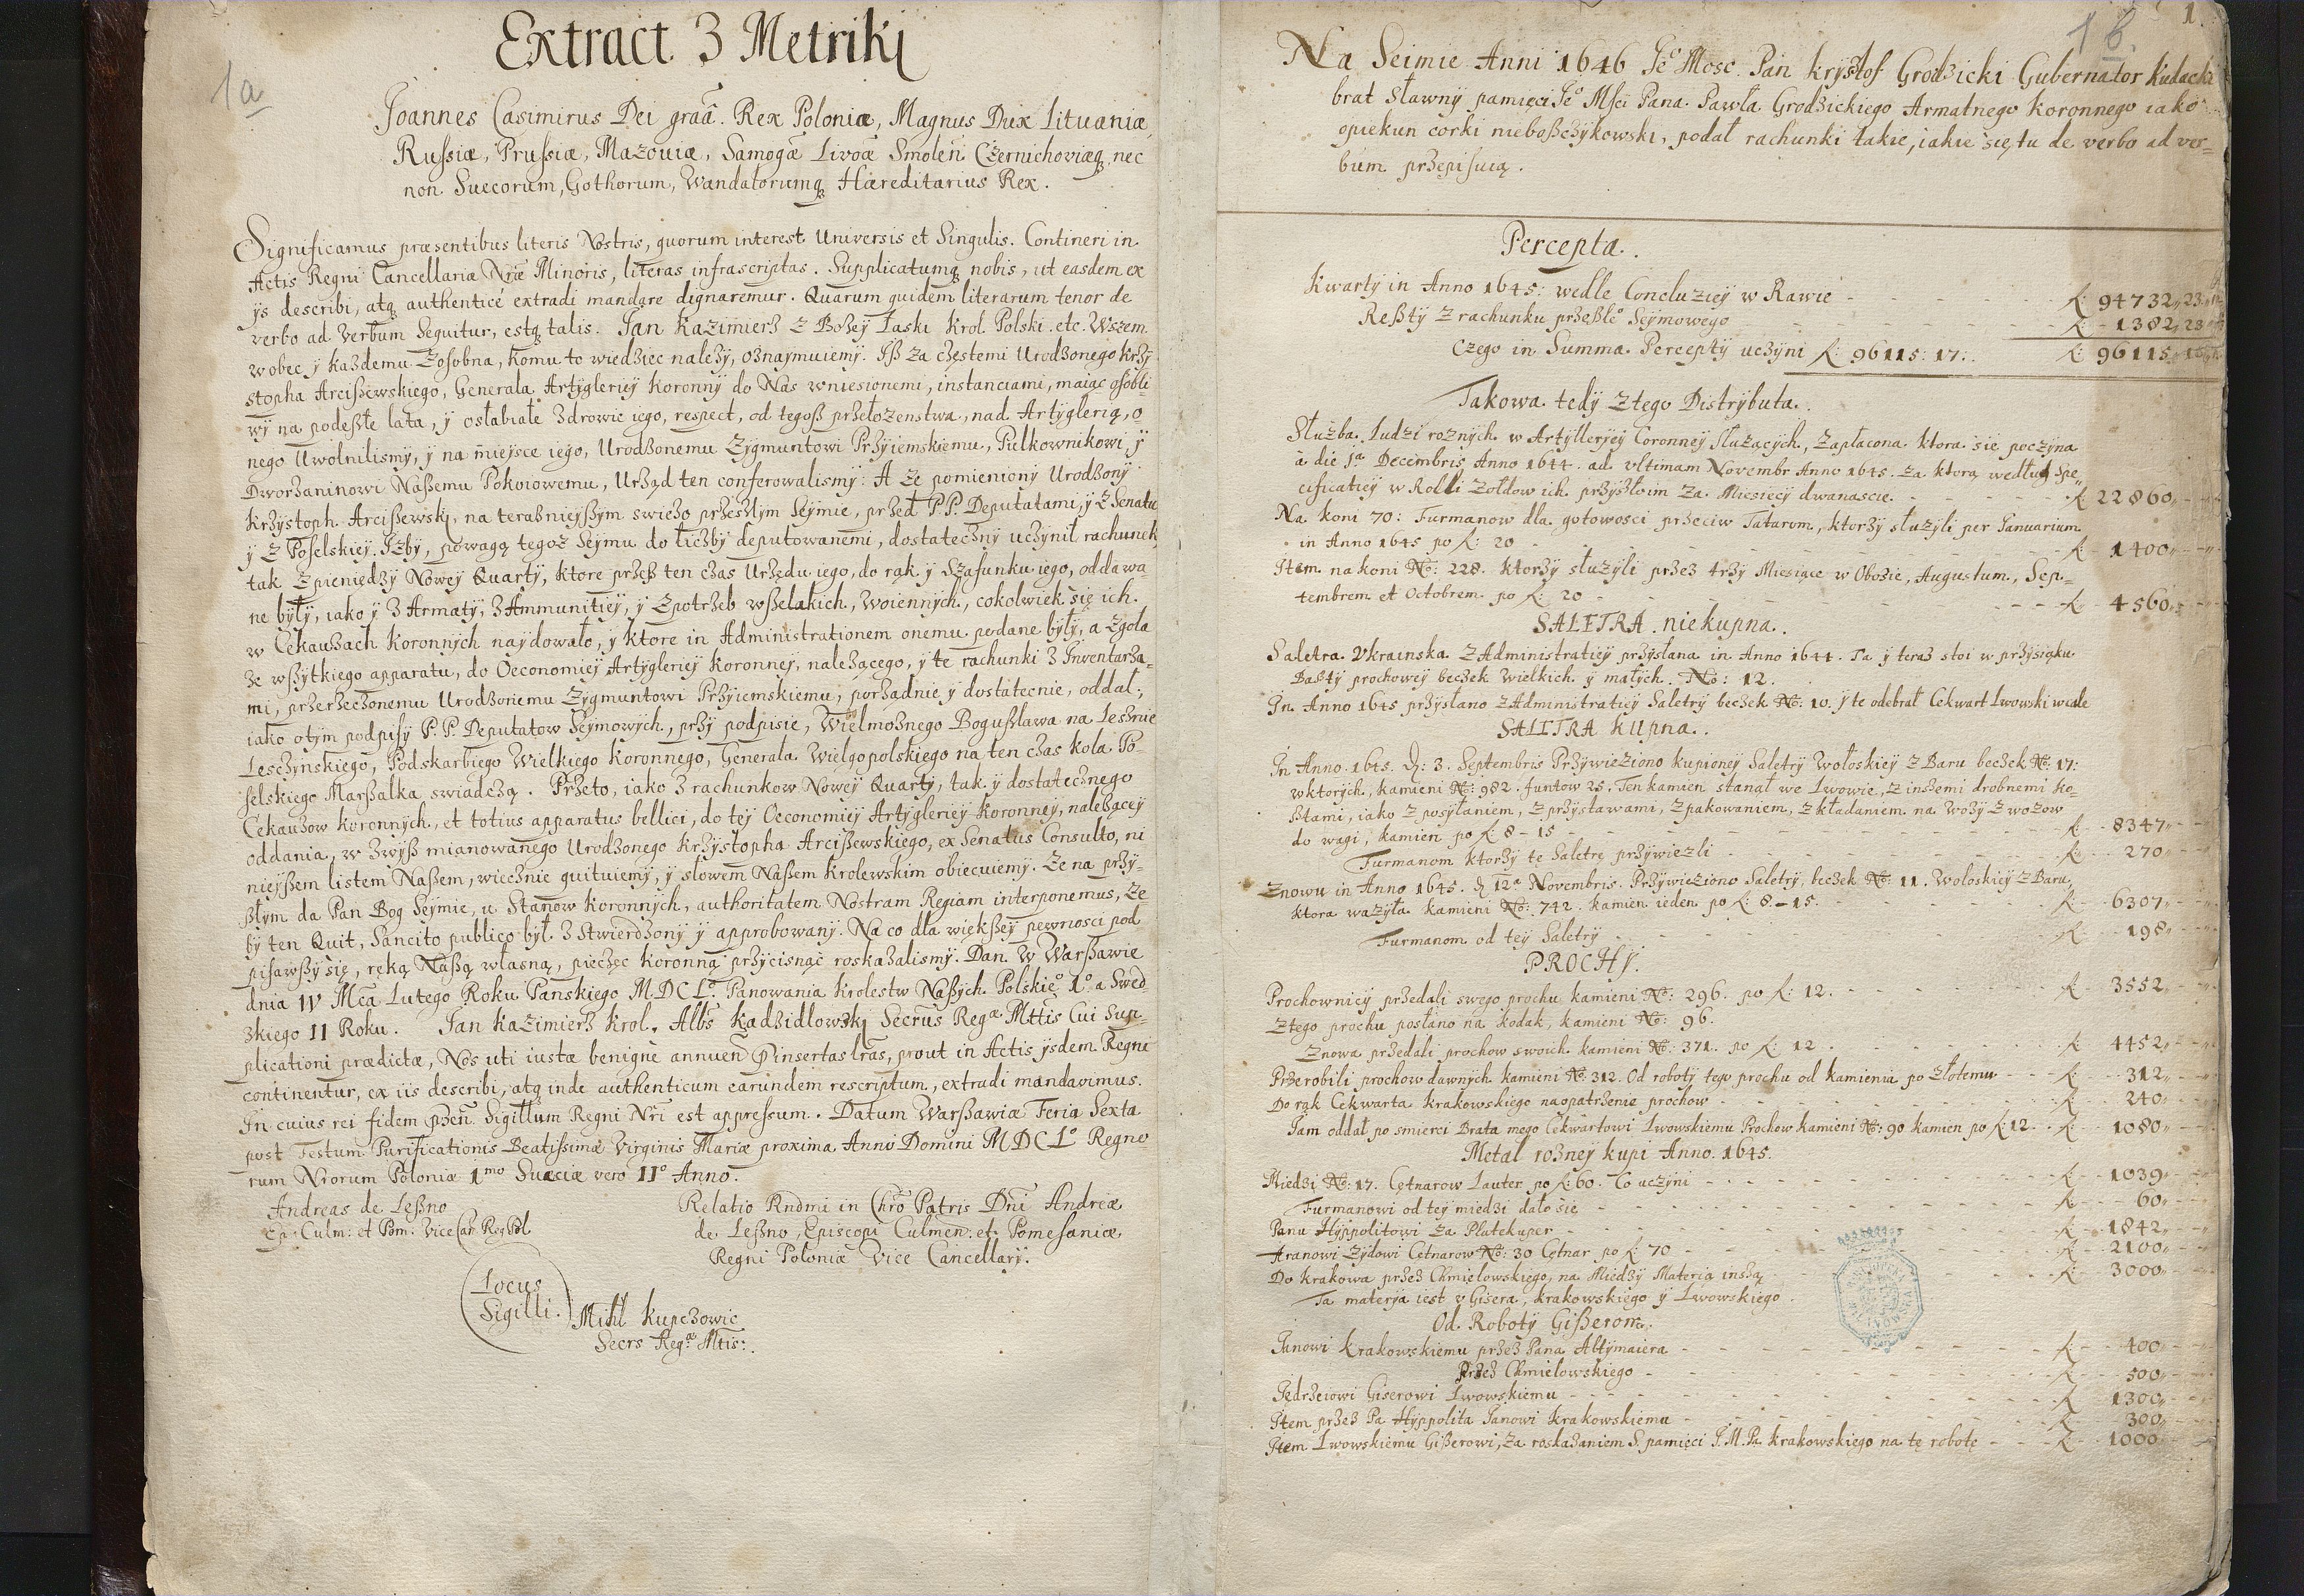 Extract 3 Metriki
1a
Joannes Casimirus Dei graã. Rex Poloniæ, Magnus Dux Lituaniæ,
Russiæ, Prussiæ, Mazoviæ, Samogã Livoã Smoleñ Czernichoviæq nec
non Suecorum, Gothorum, Wandalorumq Hæreditarius Rex.
Significamus præsentibus literis Nostris, quorum interest Universis et Singulis. Contineri in
Actis Regni Cancellariæ Nræ Minoris, literas infrascriptas. Supplicatumq nobis, ut easdem ex
ys describi, atq authenticé extradi mandare dignaremur. Quarum quidem literarum tenor de
verbo ad verbum sequitur, estq talis. Jan Kazimierz z Bozey Łaski Krol Polski. etc. Wszem
wobec y kazdemu zosobna, komu to wiedziec nalezy, oznaymuiemy. Iß za częstemi Urodzonego Krzy
stopha Arcißewskiego, Generala Artygleriey Koronny do Nas wniesionemi, instanciami, maiąc osobli
wy na podeßłe lata, y osłabiałe zdrowie iego, respect, od tegoß przełozenstwa, nad Artyglerią, o
nego Uwolnilismy, y na mieysce iego, Urodzonemu Zygmuntowi Przyiemskiemu, Pulkownikowi y
Dworzaninowi Naßemu Pokoiowemu, Urząd ten conferowalismy: A ze pomieniony Urodzony
Krzystoph Arcißewski, na teraznieyßym swiezo przeszłym Seymie, przed P.P. Deputatami, y z Senatu
y z Poselskiey Izby, powagą tegoz Seymu do liczby deputowanemi, dostateczny uczynił rachunek,
tak z pieniędzy Nowey Quarty, ktore przeß ten czas Urzędu iego, do rąk y Szafunku iego, oddawa-
ne były, iako y z Armaty, z Ammunitiey, y z potrzeb wßelakich, woiennych, cokolwiek się ich
w Cekauzach Koronnych naydowało, y ktore in Administrationem onemu podane były, a zgoła
ze wßytkiego apparatu, do Oeconomiey Artygleriey Koronney, nalezącego, y te rachunki z Inwentarza-
mi, przerzeczonemu Urodzonemu Zygmuntowi Przyiemskiemu, porządnie y dostatecnie, oddał,
iako o tym podpisy P.P. Deputatow Seymowych, przy podpisie, Wielmoznego Bogußlawa na Lesznie
Leszczynskiego, Podskarbiego Wielkiego Koronnego, Generala Wielgopolskiego na ten czas Kola Po-
selskiego Marßalka swiadczą. Przeto, iako z rachunkow Nowey Quarty, tak y dostatecznego
Cekauzow koronnych, et totius apparatus bellici, do tey Oeconomiey Artygleriey Koronney, nalezącey
oddania, w zwyß mianowanego Urodzonego Krzystopha Arcißewskiego, ex Senatus Consulto, ni
nieyßem listem Naßem, wiecznie quituiemy, y słowem Naßem Krolewskim obiecuiemy. Ze na przy-
ßłym da Pan Bog Seymie, u Stanow koronnych, authoritatem Nostram Regiam interponemus, ze
by ten Quit, Sancito publico był zstwierdzony y approbowany. Na co dla większey pewnosci pod
pisawßy się, ręką Naßą własną, pieczęc koronną przycisnąć roskazalismy. Dan w Warßawie
dnia IV Mca Lutego Roku Panskiego M.D.C.Lº. Panowania krolestw Naßych Polskiegº 1º a Swed-
zkiego II Roku. Jan Kazimierz Krol. Albs Kadzidlowski Secrus Regª Mttis Cui Sup-
plicationi prædictæ, Nos uti iustæ benigne annueñ pinsertas lras, prout in Actis ysdem Regni
continentur, ex iis describi, atq inde authenticum earundem rescriptum, extradi mandavimus.
In cuius rei fidem pñeñ Sigillum Regni Nri est appressum. Datum Warßawiæ Feria Sexta
post Festum Purificationis Beatissimæ Virginis Mariæ proxima Anno Domini M D C Lº Regno
rum Nrorum Poloniæ 1mo Sueciæ vero IIº Anno.
Andreas de Leßno
Ep: Culm: et Pom: Vice Can: Reg Pol.
Relatio Rndmi in Chrõ Patris Dni Andreæ
de Leßno, Episcopi Culmen: et Pomesaniæ,
Regni Poloniæ Vice Cancellary.
Locus
Sigilli.
Mihl Kupczowic
Secrs Regæ Mtis:
1b
1.
Na Seimie Anni 1646 Jeº Mosc Pan Krysztof Grodzicki Gubernator Kudacki
brat sławny pamięci Jeº Msci Pana Pawła Grodzickiego Armatnego koronnego iako
opiekun corki nieboßczykowski, podał rachunki takie, iakie się tu de verbo ad ver-
bum przepisuią.
Percepta.
Kwarty in Anno 1645: wedle Concluziey w Rawie - f: 94732,, 23
Reßty z rachunku przeßłeº Seymowego - f: 1382,, 23
Czego in Summa Percepty uczyni f: 96115: 17: f: 96115
Takowa tedy z tego Distrybuta.
Służba Iudzi roznych w Artylleryey Coronney służących, zapłacona ktora sie poczyna
à die 1ª Decembris Anno 1644. ad ultimam Novembr Anno 1645. za ktorą według Spe,,
cificatiey w Rolli zołdow ich przyßło im za Miesiecy dwanascie. - f: 22860
Na koni 70: Furmanow dla gotowosci przeciw Tatarom, ktorzy słuzyli per Januarium
in Anno 1645 po f: 20 - f: 1400
Item na koni No: 228. ktorzy słuzyli przez trzy Miesiące w Obozie, Augustum, Sep-
tembrem et Octobrem po f: 20 - f: 4560
SALETRA niekupna.
Saletra Vkrainska z Administratiey przysłana in Anno 1644. Ta y teraz stoi w przysiąku
Baßty prochowey beczek wielkich y małych. No: 12.
In Anno 1645 przysłano z Administratiey Saletry beczek No: 10. y te odebrał Cekwart Lwowski wcale
SALETRA Kupna.
In Anno 1645. D: 3. Septembris Przywieziono kupioney Saletry Wołoskiey z Baru beczek No: 17:
w ktorych, kamieni No: 982. funtow 25. Ten kamien stanął we Lwowie, z inszemi drobnemi ko-
sztami, iako z posyłaniem, z przystawami, z pakowaniem, z kładaniem na wozy z wozow
do wagi, kamien po f: 8 - 15 - f: 8347
Furmanom ktorzy tę Saletrę przywiezli - f: 270
Znowu in Anno 1645. D 12ª Novembris. Przywieziono Saletry, beczek No: 11. Woloskiey z Baru,
ktora wazyła kamieni No: 742. kamien ieden po f: 8. - 15. - f: 6307
Furmanom od tey Saletry - f: 198
PROCHY.
Prochownicy przedali swego prochu kamieni No: 296. po f: 12. - f: 3552
Z tego prochu posłano na Kodak, kamieni No: 96.
Znowa przedali prochow swoich kamieni No: 371. po f: 12 - f: 4452
Przerobili prochow dawnych kamieni No: 312. Od roboty tego prochu od kamienia po złotemu - f: 312
Do rąk Cekwarta krakowskiego na opatrzenie prochow - f: 240
Jam oddał po smierci Brata mego Cekwartowi Lwowskiemu Prochow kamieni No: 90 kamien po f: 12 - f: 1080
Metal rozney kupi Anno. 1645.
Miedzi No: 17. Cętnarow Lauter po f: 60. To uczyni - f: 1039
Furmanowi od tey miedzi dało się - f: 60
Panu Hyppolitowi za Platekuper - f: 1842
Aranowi Zydowi Cętnarow No: 30 Cętnar po f: 70 - f: 2100
Do krakowa przez Chmielowskiego, na Miedzy Materią inszą - f: 3000
Ta materja iest v Gisera, krakowskiego y Lwowskiego.
Od Roboty Gißerom.
Janowi krakowskiemu przez Pana Altymaiera - f: 400
Przez Chmielowskiego - f: 500
Jędrzeiowi Giserowi Lwowskiemu - f: 1300
Item przez Pa Hyppolita Janowi krakowskiemu - f: 300
Item Lwowskiemu Gißerowi, za roskazaniem S. pamięci J.M.Pa krakowskiego na tę robotę - f: 1000